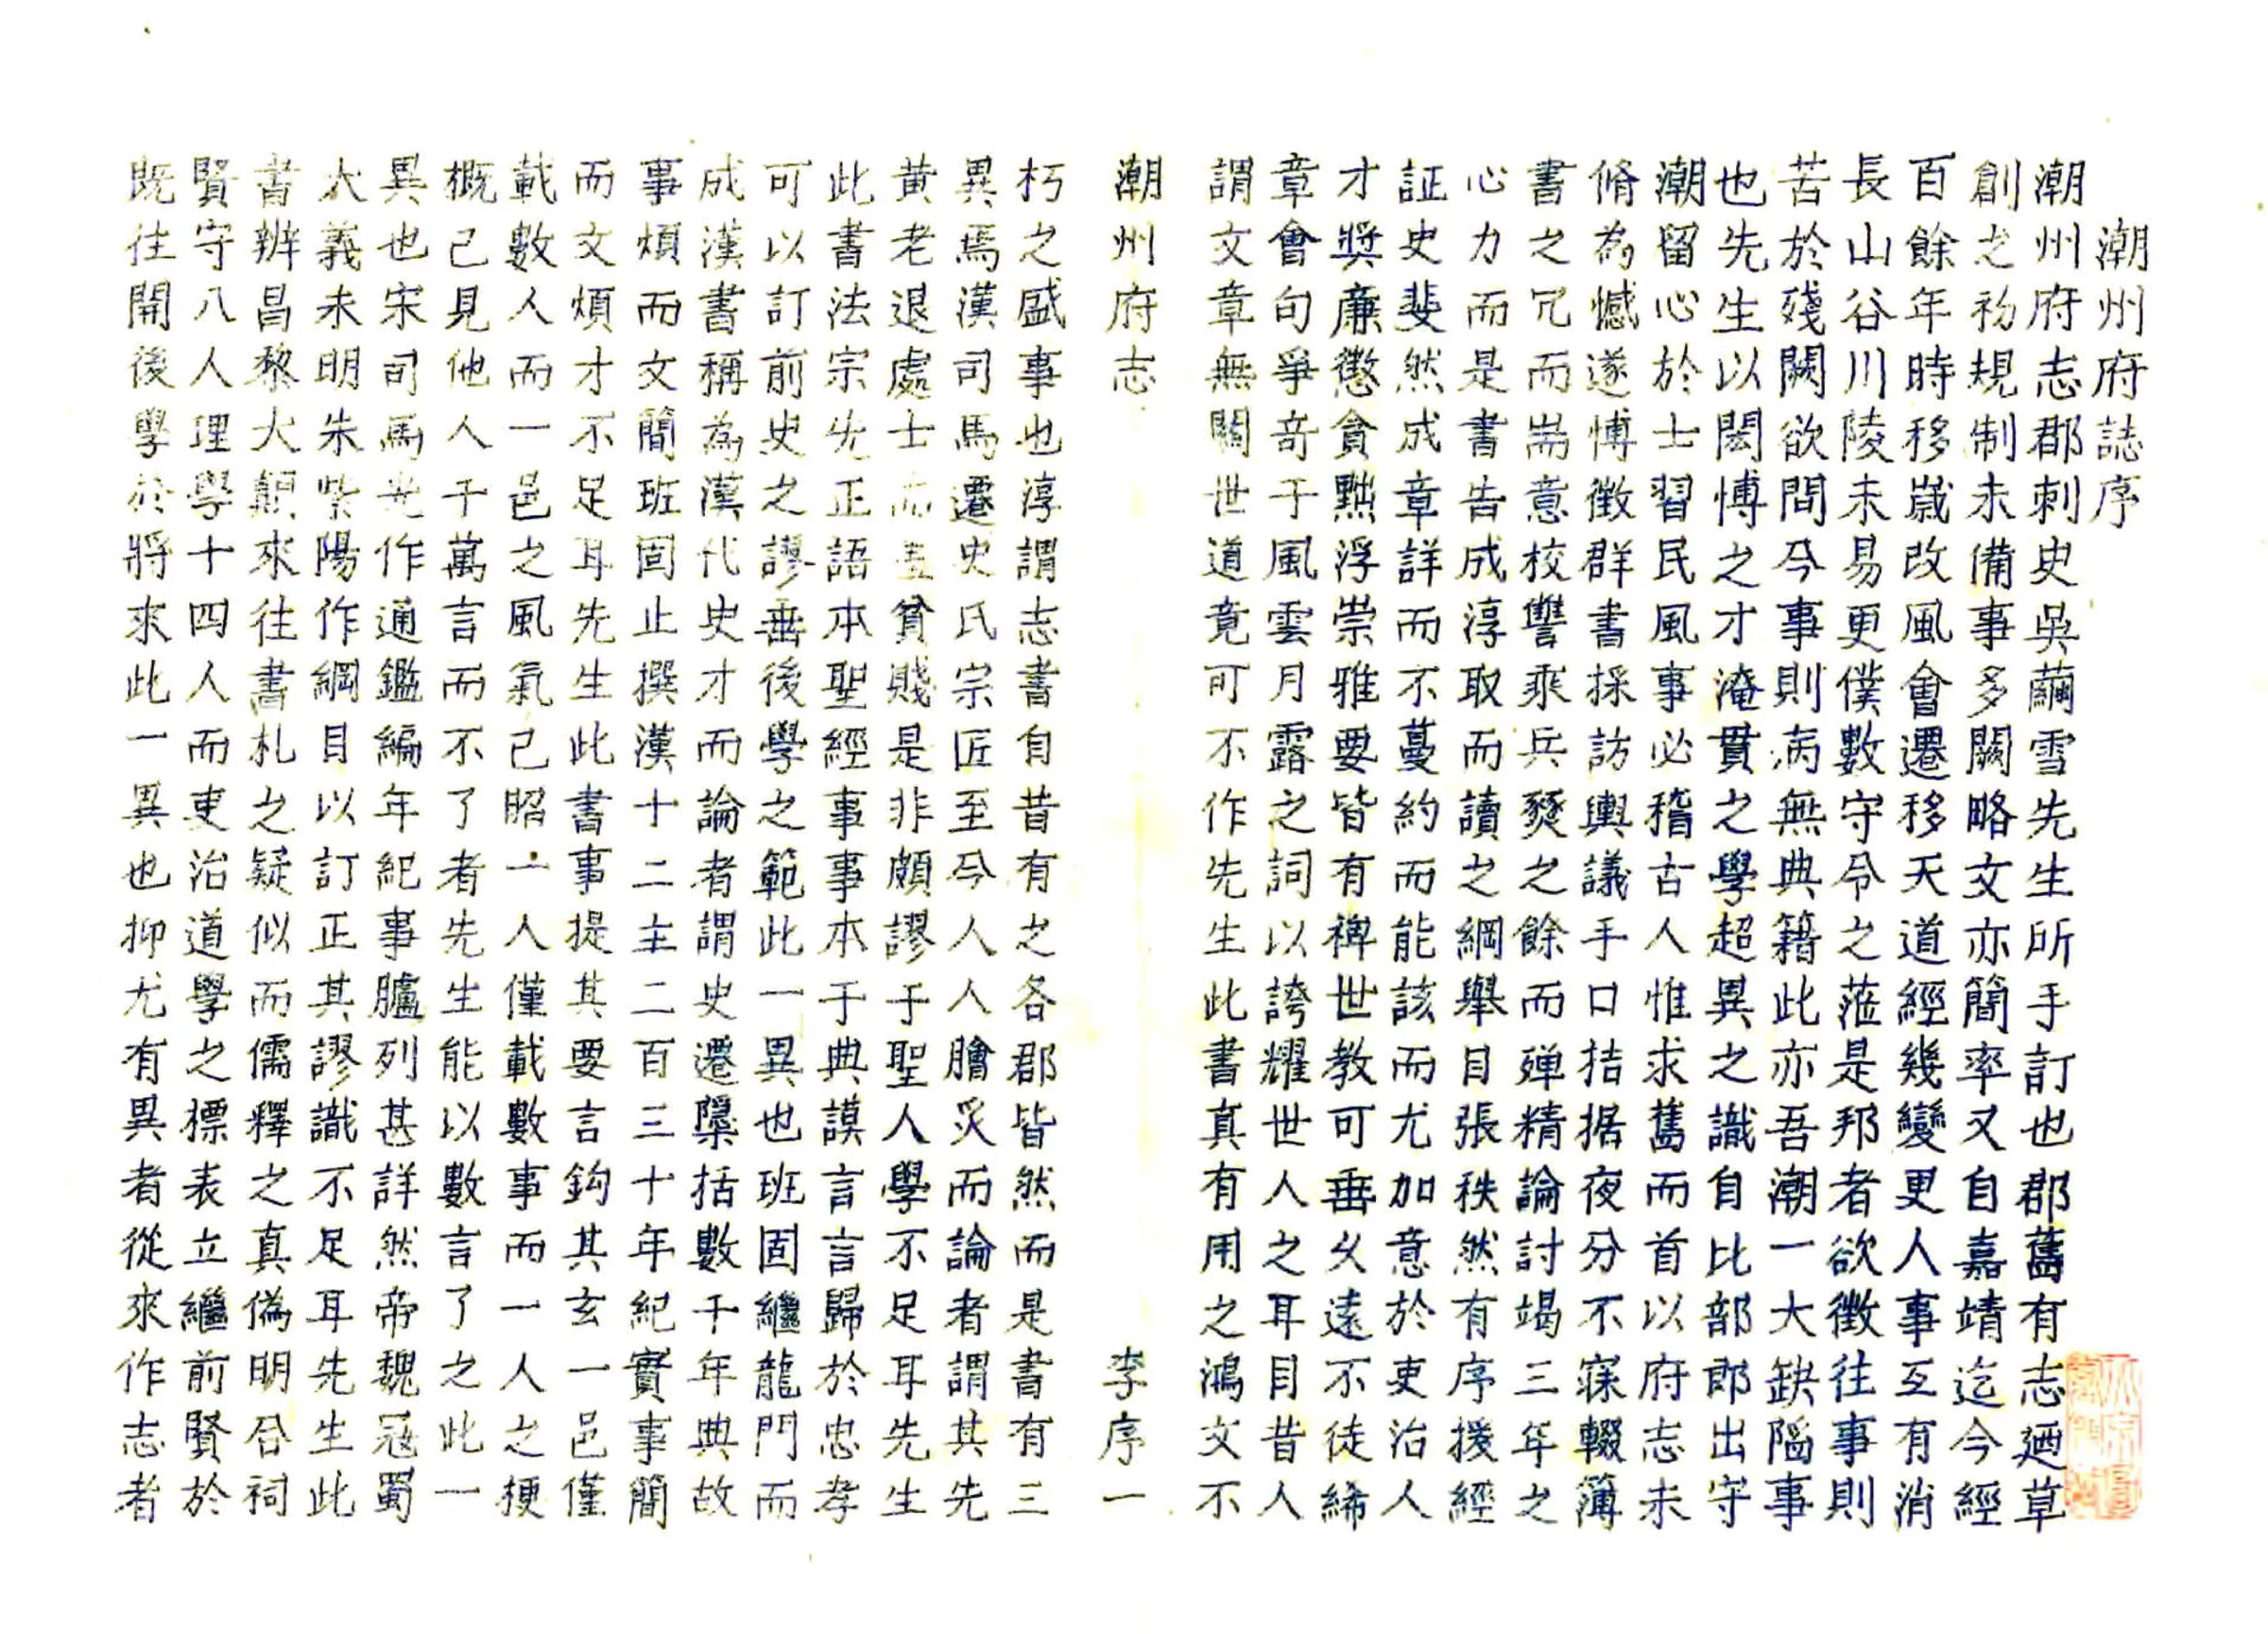 潮州府誌序
潮州府志郡刺史吳薗雪先生所手訂也郡舊有志廼草
創之初規制未備事多闕略文亦簡率又自嘉靖迄今經
百餘年時移歲改風會遷移天道經幾變更人事互有消
長山谷川陵未易更僕數守令之蒞是邦者欲徵往事則
苦於殘闕欲問今事則病無典籍此亦吾潮一大缺陷事
也先生以閎博之才淹貫之學超異之識自比部郎出守
潮留心於士習民風事必稽古人惟求舊而首以府志未
脩為憾遂博徵群書採訪輿議手口拮据夜分不寐輟簿
書之冗而耑意校讐乘兵燹之餘而殫精論討竭三年之
心力而是書告成淳取而讀之綱舉目張秩然有序援經
証史斐然成章詳而不蔓約而能該而尤加意於吏治人
才獎廉懲貪黜浮崇雅要皆有裨世教可垂久遠不徒絺
章會句爭奇于風雲月露之詞以誇耀世人之耳目昔人
謂文章無關世道竟可不作先生此書真有用之鴻文不
潮州府志 李序一
朽之盛事也淳謂志書自昔有之各郡皆然而是書有三
異焉漢司馬遷史氏宗匠至今人人膾炙而論者謂其先
黃老退處士而羞貧賤是非頗謬于聖人學不足耳先生
此書法宗先正語本聖經事事本于典謨言言歸於忠孝
可以訂前史之謬垂後學之範此一異也班固繼龍門而
成漢書稱為漢代史才而論者謂史遷櫽括數千年典故
事煩而文簡班固止撰漢十二主二百三十年紀實事簡
而文煩才不足耳先生此書事提其要言鈎其玄一邑僅
載數人而一邑之風氣己昭一人僅載數事而一人之梗
概己見他人千萬言而不了者先生能以數言了之此一
異也宋司馬光作通鑑編年紀事臚列甚詳然帝魏寇蜀
大義未明朱紫陽作綱目以訂正其謬識不足耳先生此
書辨昌黎大顛來往書札之疑似而儒釋之真偽明合祠
賢守八人理學十四人而吏治道學之標表立繼前賢於
既往開後學於將來此一異也抑尤有異者從來作志者